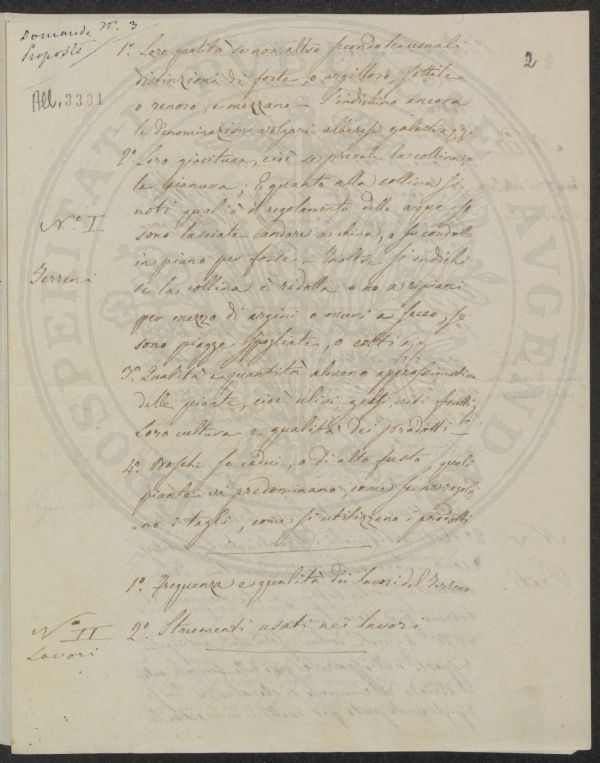 Domande N.° 3
Proposte
2
All. 3301
1.° Loro qualità se non altro secondo le usuali
distinzioni di forte, o argilloso, sottile
o renoso, e mezzano – S'indichino ancora
le denominazioni volgari alberese galestro
2.° Loro giacitura, cioè se prevale la collina o
la pianura. E quanto alla collina si
noti qual'è il regolamento delle acque, se
sono lasciate andare a china, o se condotte
in piano per fosse – Inoltre si indichi
se la collina è ridotta o no a ripiani
per mezzo di argini o muri a secco, se
sono piagge spogliate, o
N.° I
Terreni
3.° Qualità e quantità almeno approssimativa
delle piante, cioè ulivi, gelsi, viti frutti
Loro cultura e qualità dei prodotti –
4.° Boschi se cedui, o di alto fusto, quali
piante vi predominano, come se ne regola-
no i tagli, come si utilizzano i prodotti
1.° Frequenza e qualità dei lavori del terreno
N.° II
Lavori
2.° Strumenti usati nei lavori
PROSPERITATI AUGENDAE